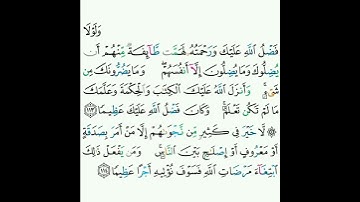 وَلَوْلَا
فَضْلُ اللَّهِ عَلَيْكَ وَرَحْمَتُهُ لَهَمَّت طَّآئِفَةٌ مِّنْهُمْ أَن
يُضِلُّوكَ وَمَا يُضِلُّونَ إِلَّآ أَنفُسَهُمْ ۖ وَمَا يَضُرُّونَكَ مِن
شَىْءٍ ۚ وَأَنزَلَ اللَّهُ عَلَيْكَ الْكِتَٰبَ وَالْحِكْمَةَ وَعَلَّمَكَ
مَا لَمْ تَكُن تَعْلَمُ ۚ وَكَانَ فَضْلُ اللَّهِ عَلَيْكَ عَظِيمًا ١١٣
لَّا خَيْرَ فِى كَثِيرٍ مِّن نَّجْوَىٰهُمْ إِلَّا مَنْ أَمَرَ بِصَدَقَةٍ
أَوْ مَعْرُوفٍ أَوْ إِصْلَٰحٍۭ بَيْنَ النَّاسِ ۚ وَمَن يَفْعَلْ ذَٰلِكَ
ابْتِغَآءَ مَرْضَاتِ اللَّهِ فَسَوْفَ نُؤْتِيهِ أَجْرًا عَظِيمًا ١١٤